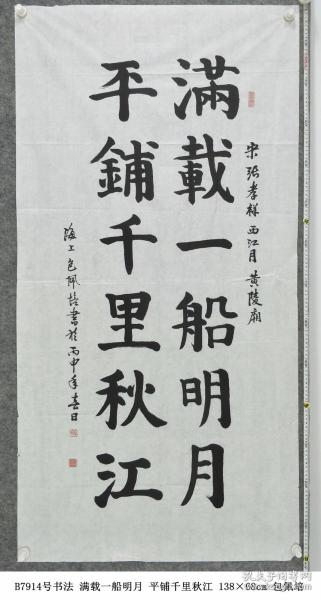 滿載一船明月
平鋪千里秋江
宋 張孝祥 西江月 黄陵廟
海上包佩培書於丙申年春日
B7914号书法 满载一船明月 平铺千里秋江 138×68cm 包佩培